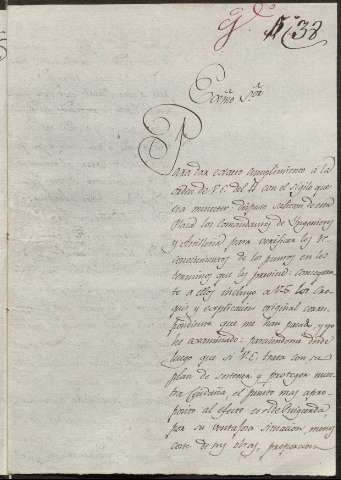 38
Exmo Sor
Para dar exacto cumplimiento á la
orden de V.E. del 11 con el sigilo que
sea menester, dispuse saliesen de esta
Plaza los Comandantes de Ingenieros
y Artilleria para verificar los Re
conocimientos de los puntos en los
terminos que les previne: consequen
te a ellos incluyo a V.E. los Cro
quis y explicacion original corres
pondiente que me han pasado, y yo
he examinado: pareciendome desde
luego que si V.E. trata con su
plan de sostener y proteger nues
tra el punto mas apro
posito al efecto es el de
por su ventajosa situacion, menos
coste de sus obras, proporcion